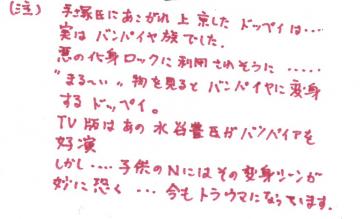 (注) 手塚氏にあこがれ上京したトッペイは‥‥
実はバンパイヤ族でした。
悪の化身ロックに利用されそうに‥‥‥
"まる〜い"物を見るとバンパイヤに変身
するトッペイ。
TV版はあの水谷豊氏がバンパイアを
好演
しかし‥‥子供のNにはその変身シーンが
妙に恐く…今もトラウマになっています。